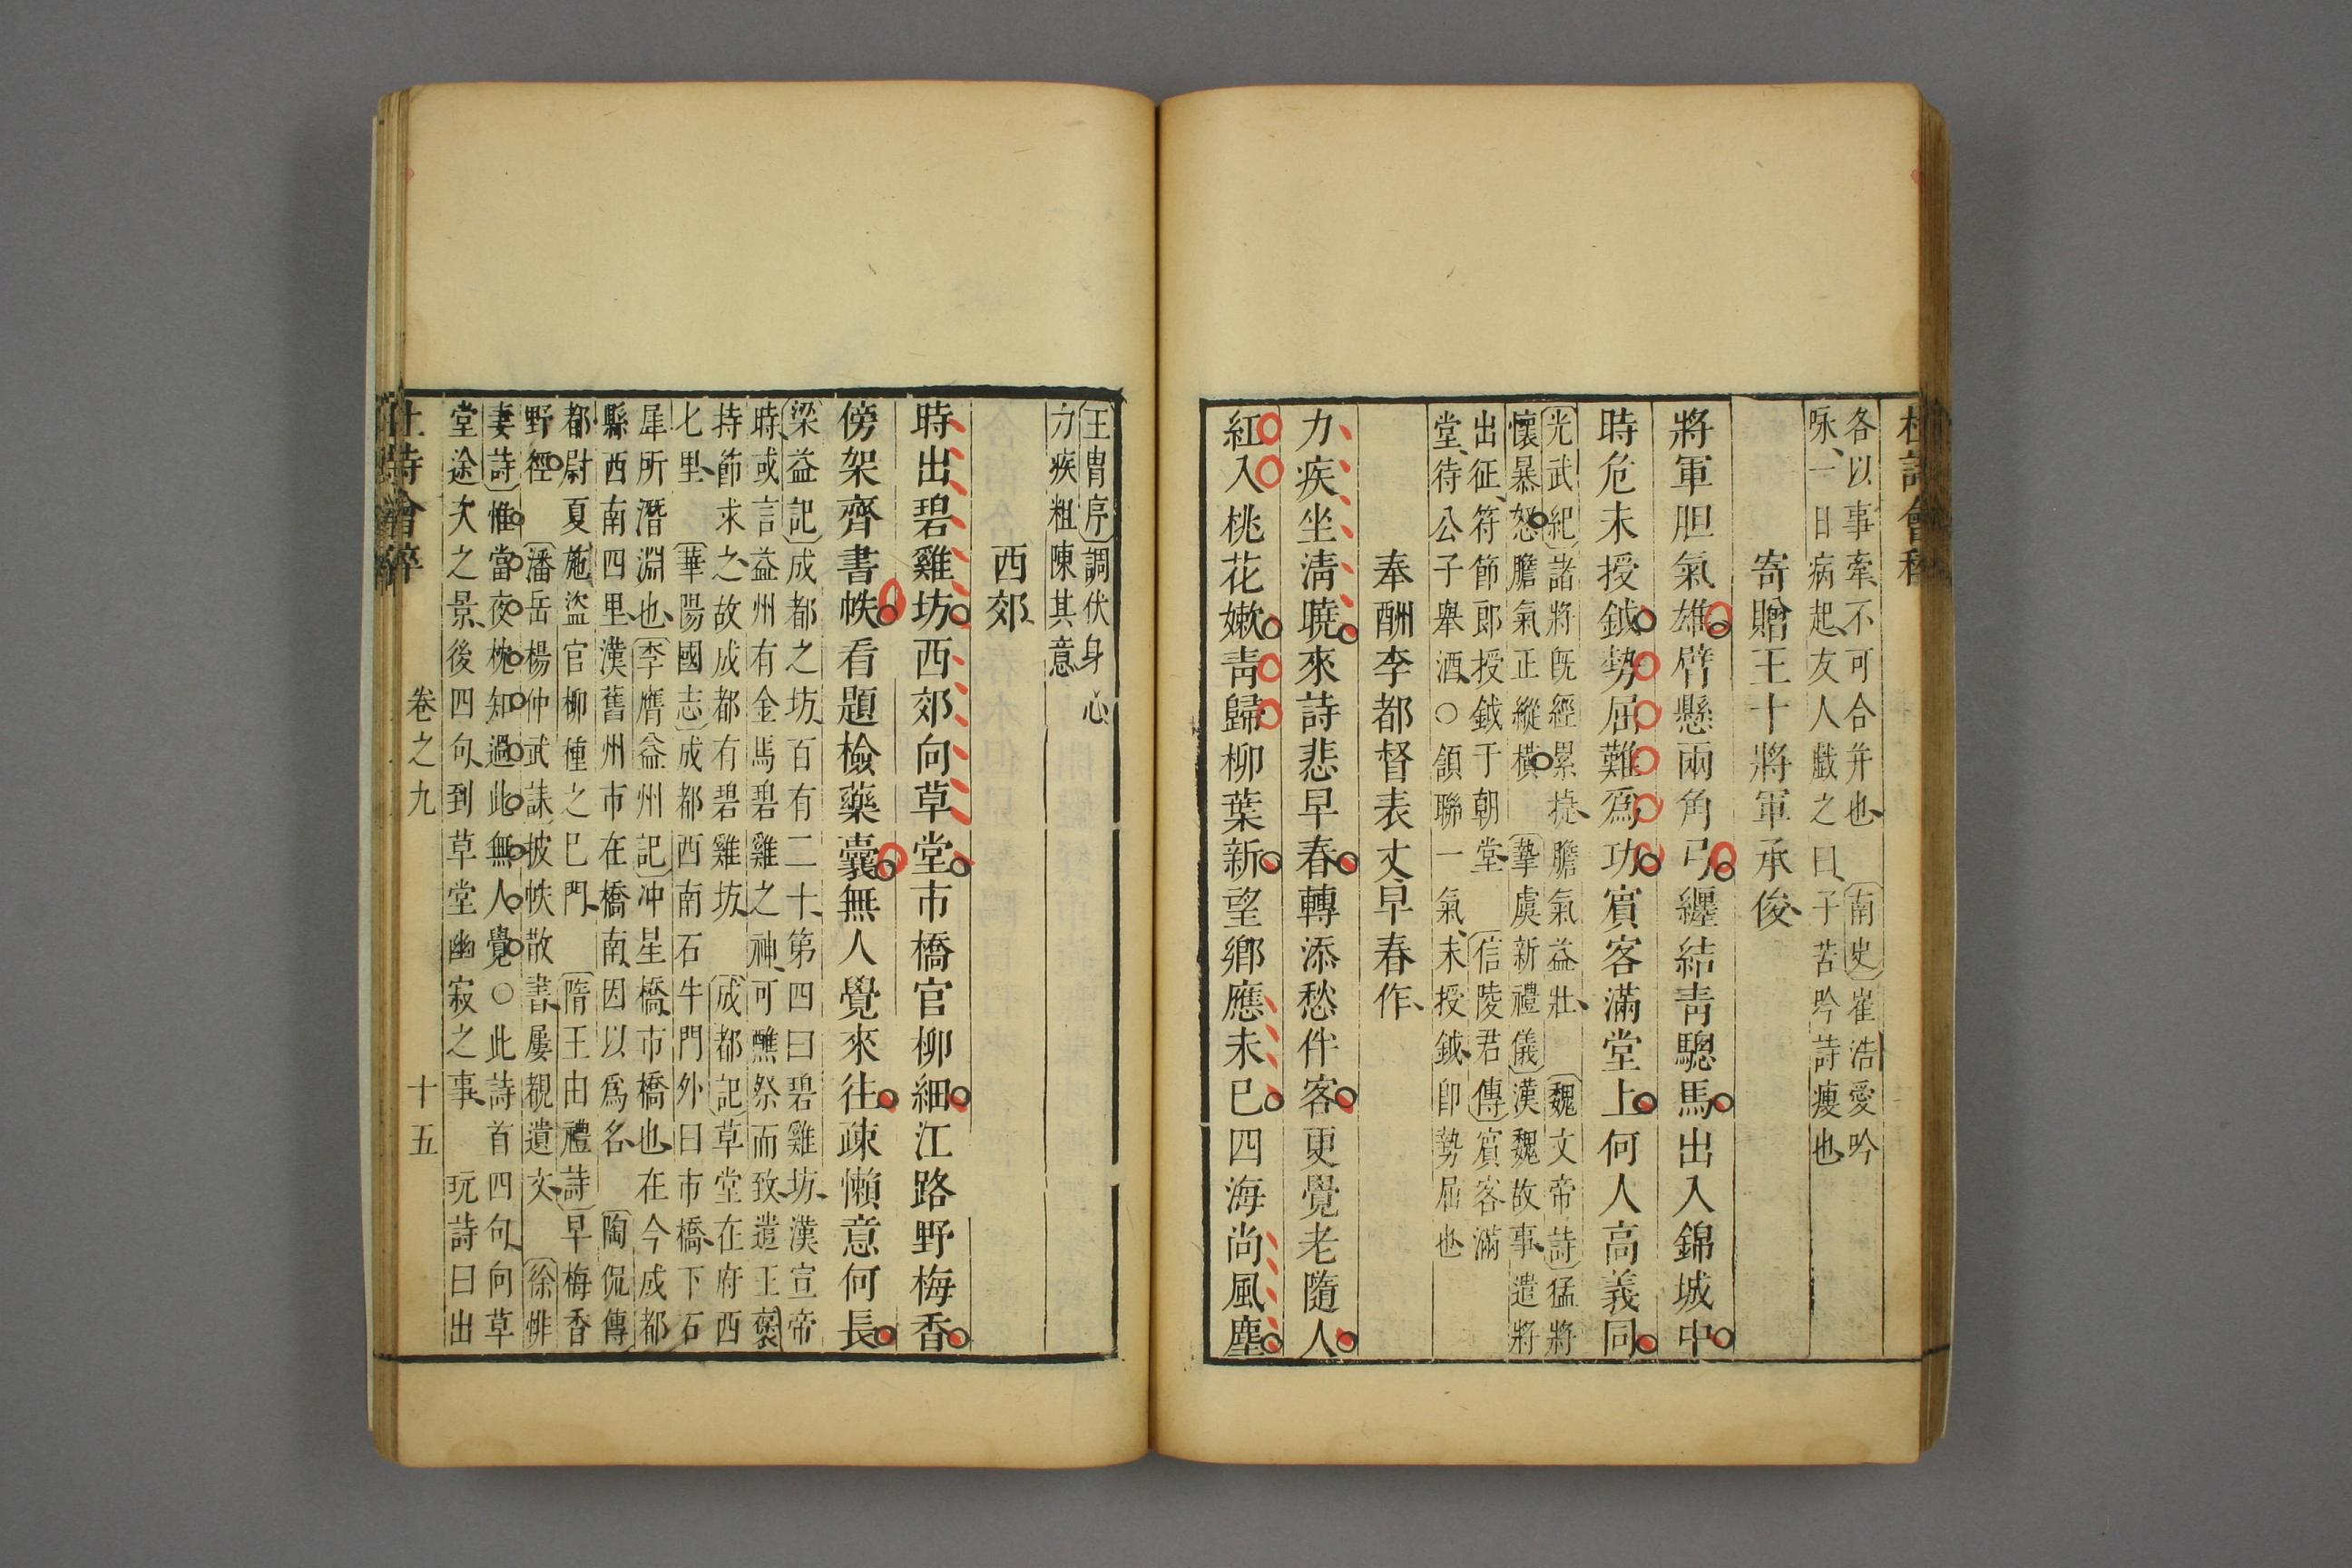 杜詩會稡
各以事牽不可合并也南史崔浩愛吟
咏一日病起友人戯之曰子苦吟詩瘦也
寄贈王十將軍承俊
將軍胆氣雄臂懸兩角弓纒結靑驄馬出入錦城中
時危未授鉞勢屈難爲功賔客滿堂上何人高義同
光武紀諸將旣經累㨗膽氣益壯魏文帝詩猛將
懷暴怒膽氣正縱橫摯虞新禮儀漢魏故事遣將
出征符節郎授鉞于朝堂信陵君傳賔客滿
堂待公子舉酒○領聯一氣未授鉞卽勢屈也
奉酬李都督表丈早春作
力疾坐淸曉來詩悲早春轉添愁伴客更覺老隨人
紅入桃花嫩靑歸柳葉新望鄉應未已四海尚風塵
王胄序調伏身心
力疾粗陳其意
西郊
時出碧雞坊西郊向草堂市橋官柳細江路野梅香
傍架齊書帙看題檢藥囊無人覺來往疎懶意何長
梁益記成都之坊百有二十第四曰碧雞坊漢宣帝
時或言益州有金馬碧雞之神可醮祭而致遣王褒
持節求之故成都有碧雞坊成都記草堂在府西
七里華陽國志成都西南石牛門外曰市橋下石
犀所潛淵也李膺益州記冲星橋市橋也在今成都
縣西南四里漢舊州市在橋南因以爲名陶侃傳
都尉夏施盜官柳種之巳門隋王由禮詩早梅香
野徑潘岳楊仲武誄披帙散書屢覩遺文徐悱
妻詩惟當夜枕知過此無人覺○此詩首四句向草
堂途次之景後四句到草堂幽寂之事玩詩曰出
杜詩會稡
卷之九
十五